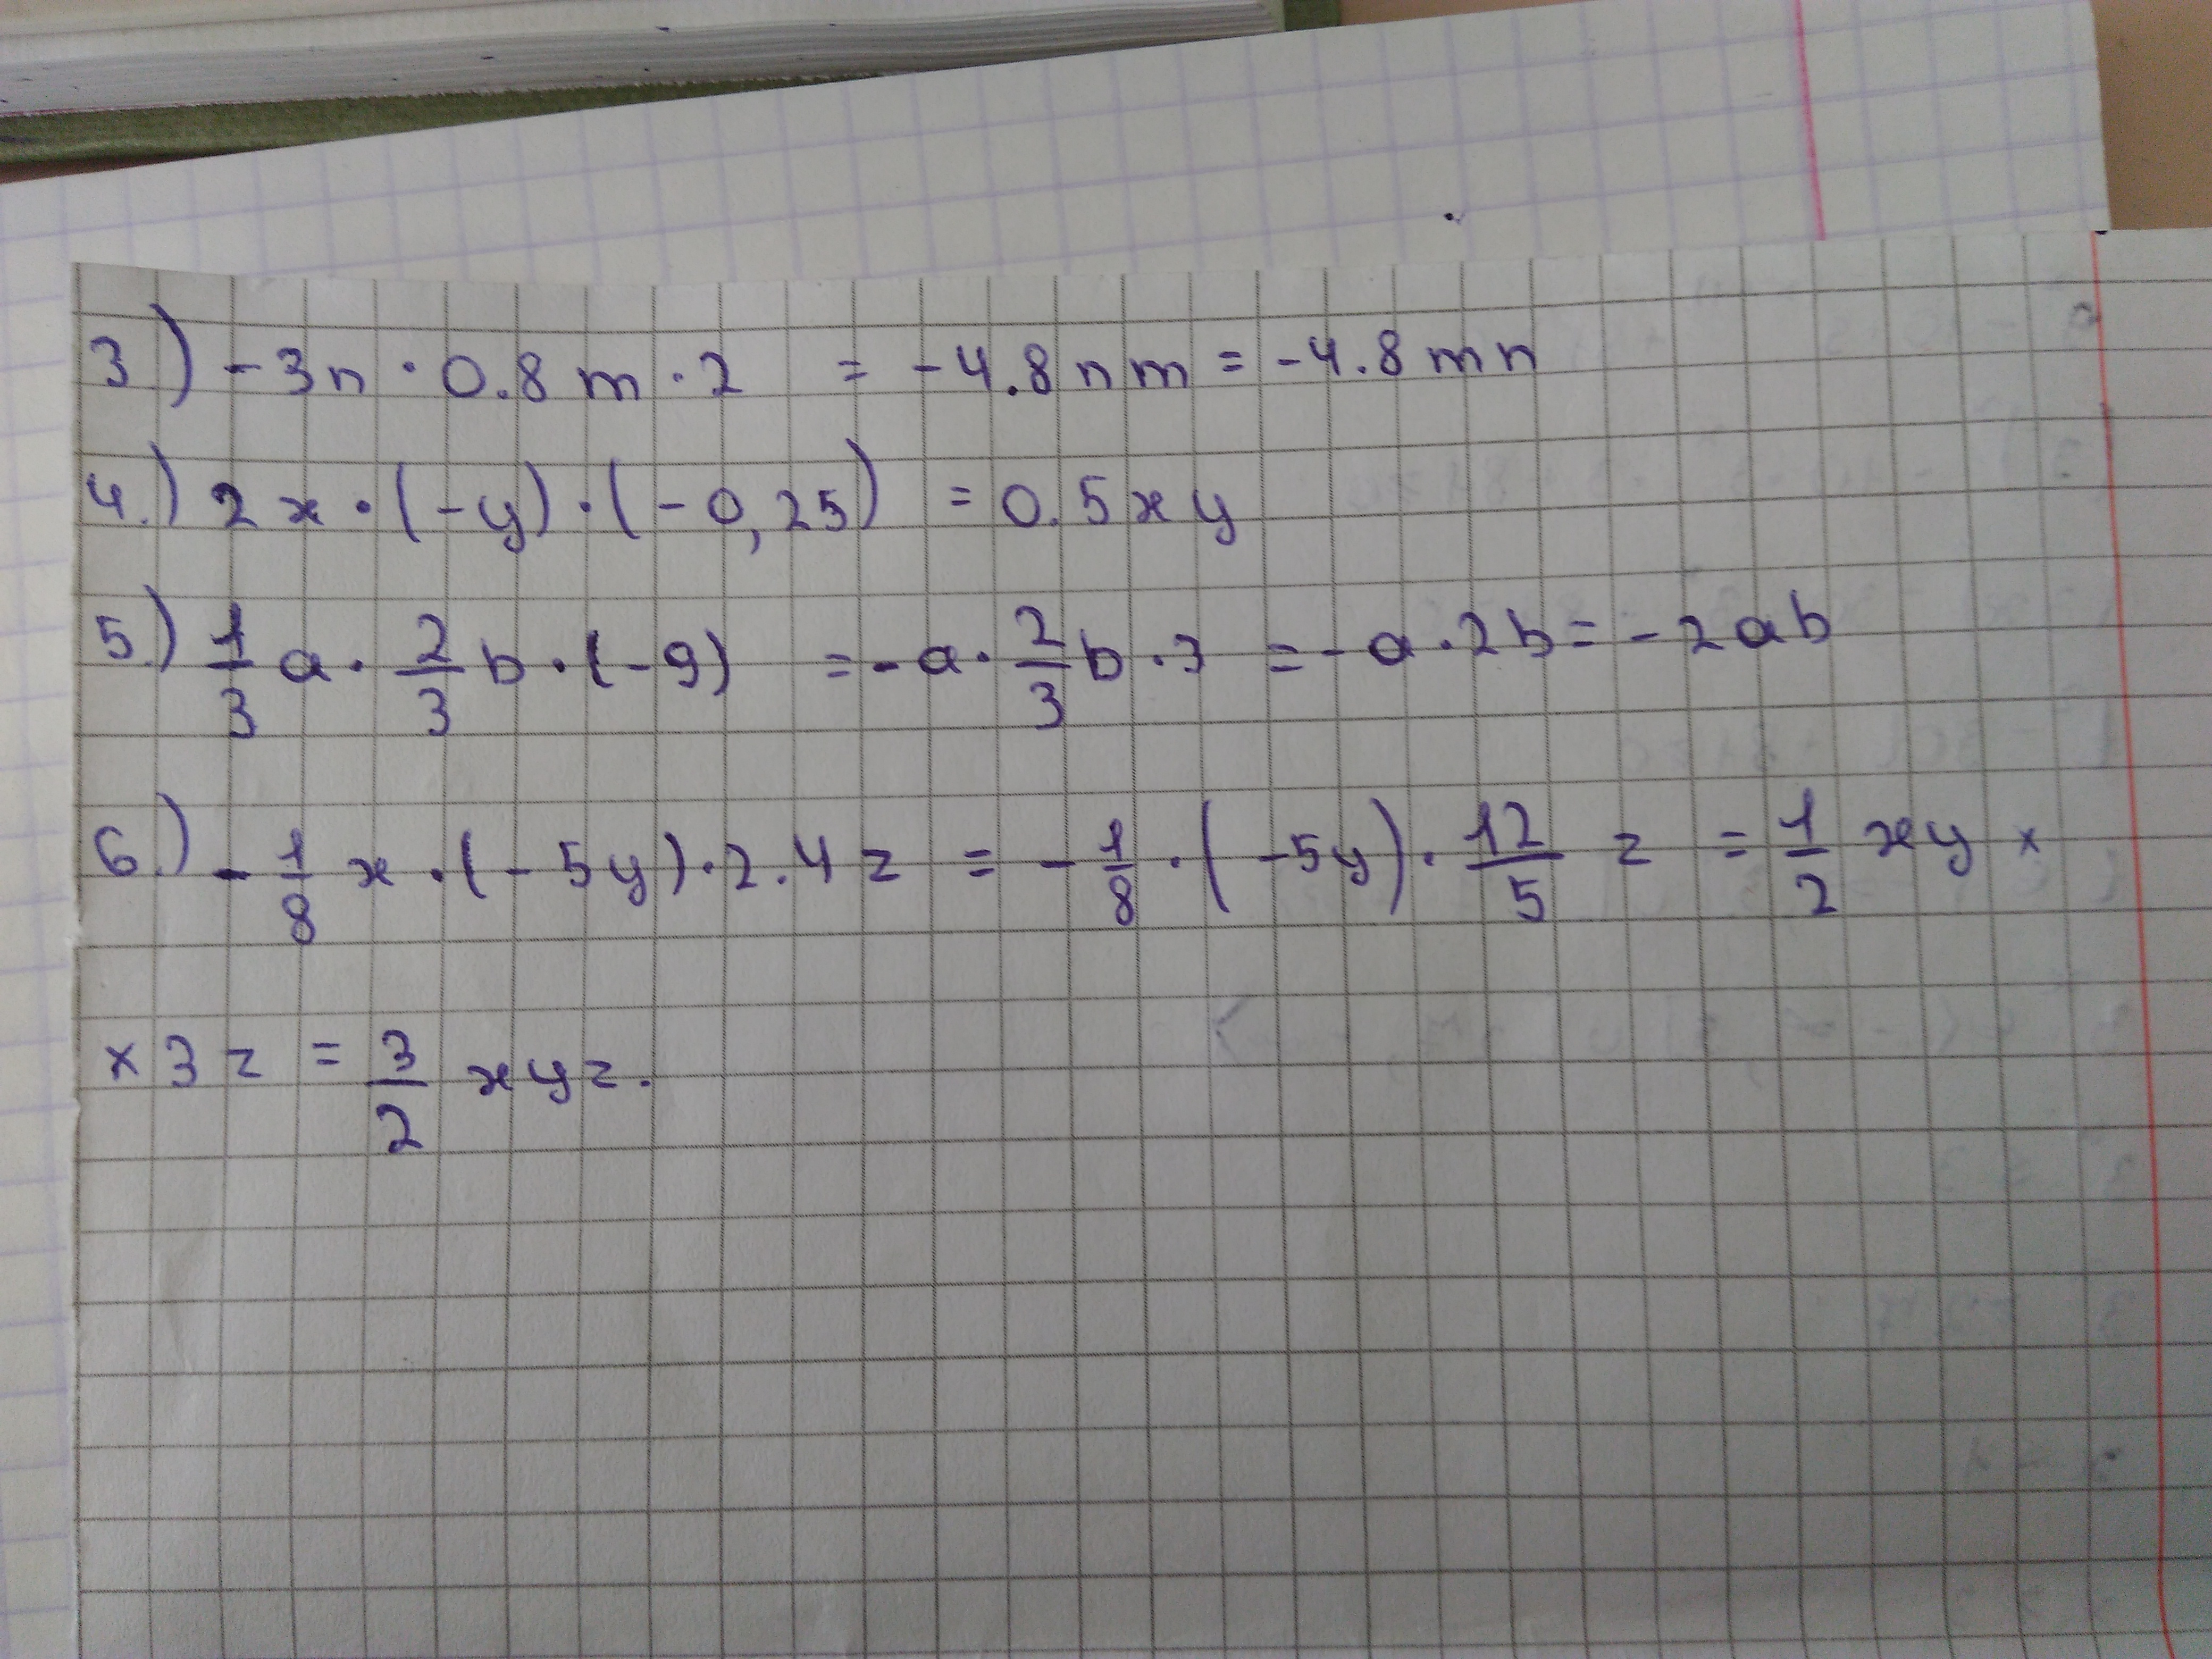 3.) -3n · 0.8m · 2 = -4.8nm = -4.8mn
4.) 2x · (-y) · (-0,25) = 0.5xy
5.) 1/3 a · 2/3 b · (-9) = -a · 2/3 b · 3 = -a · 2b = -2ab
6.) -1/8 x · (-5y) · 2.4z = -1/8 · (-5y) · 12/5 z = 1/2 xy ×
× 3z = 3/2 xyz.